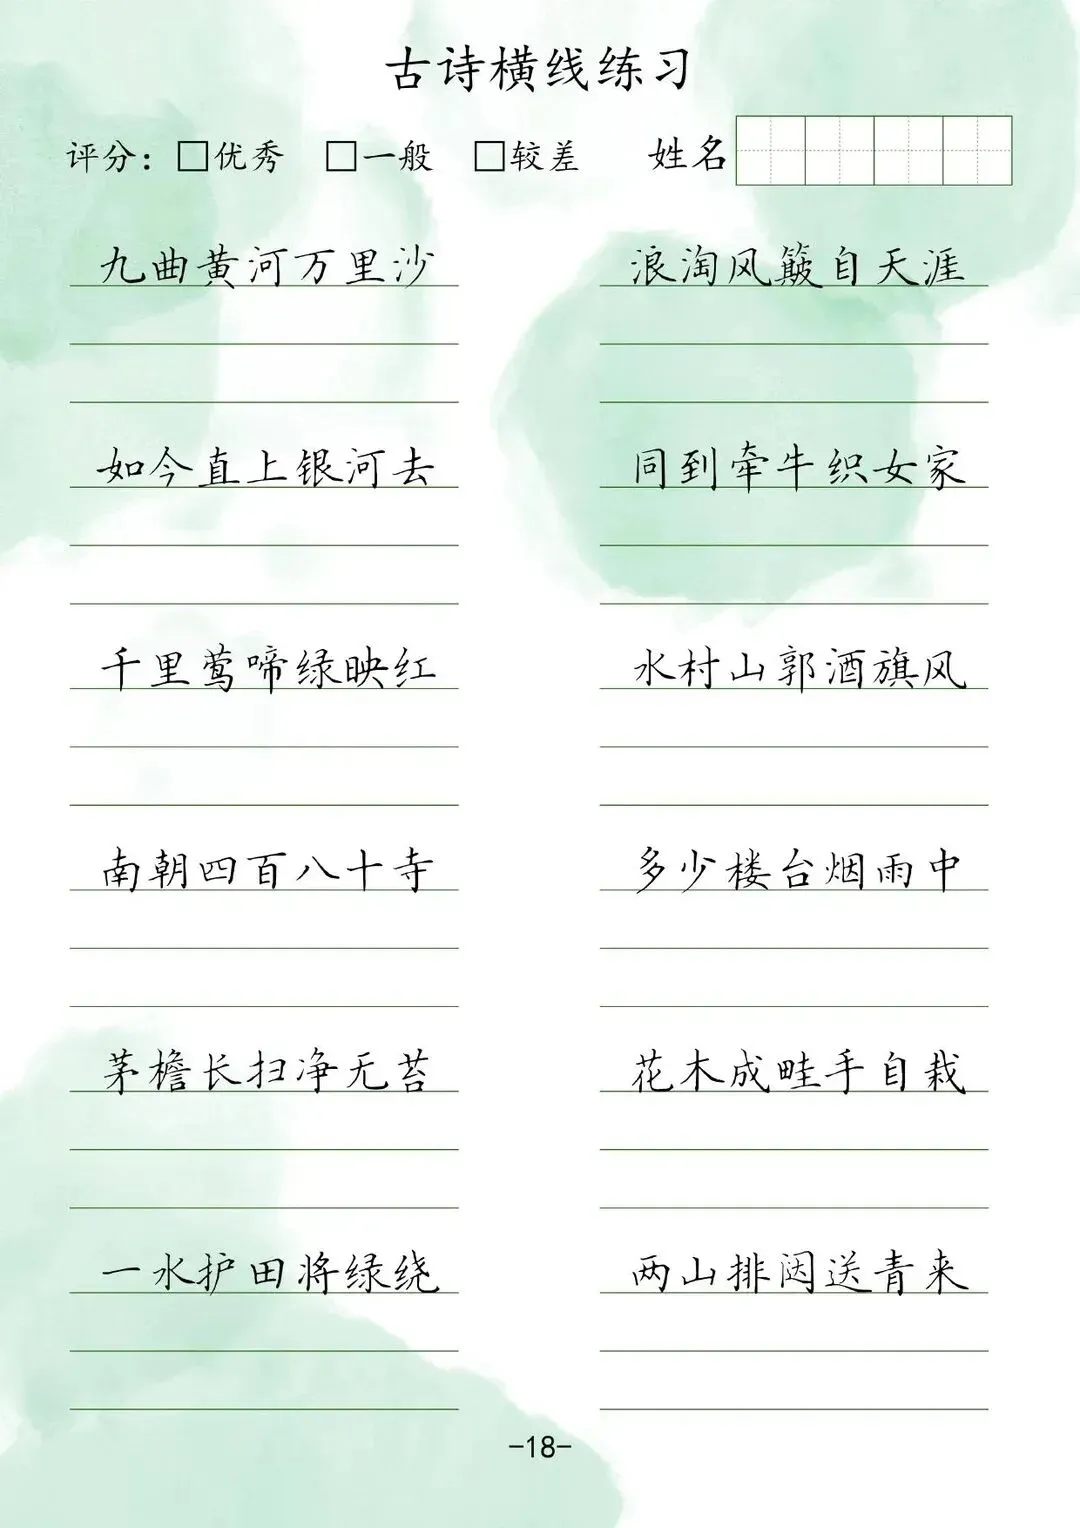 古诗横线练习
评分：□优秀 □一般 □较差 姓名
九曲黄河万里沙 浪淘风簸自天涯
如今直上银河去 同到牵牛织女家
千里莺啼绿映红 水村山郭酒旗风
南朝四百八十寺 多少楼台烟雨中
茅檐长扫净无苔 花木成畦手自栽
一水护田将绿绕 两山排闼送青来
-18-